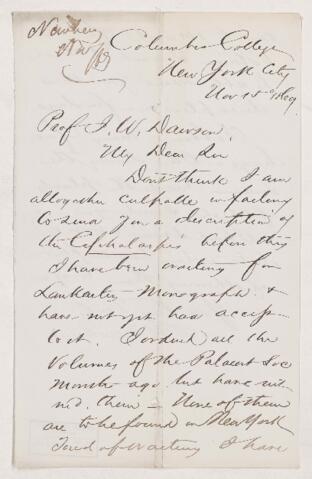 Newberry
Columbia College
New York City
Nov 1st 1869
Prof J. W. Dawson,
My Dear Sir
Don't think I am
altogether culpable in failing
to send you a description of
the Cephalaspis before this
I have been waiting for
Lankester's Monograph &
have not yet had access
to it. I ordered all the
Volumes of the Palaeont Soc
months ago but have
them – None of them
are to be found in New York
Tired of waiting I have